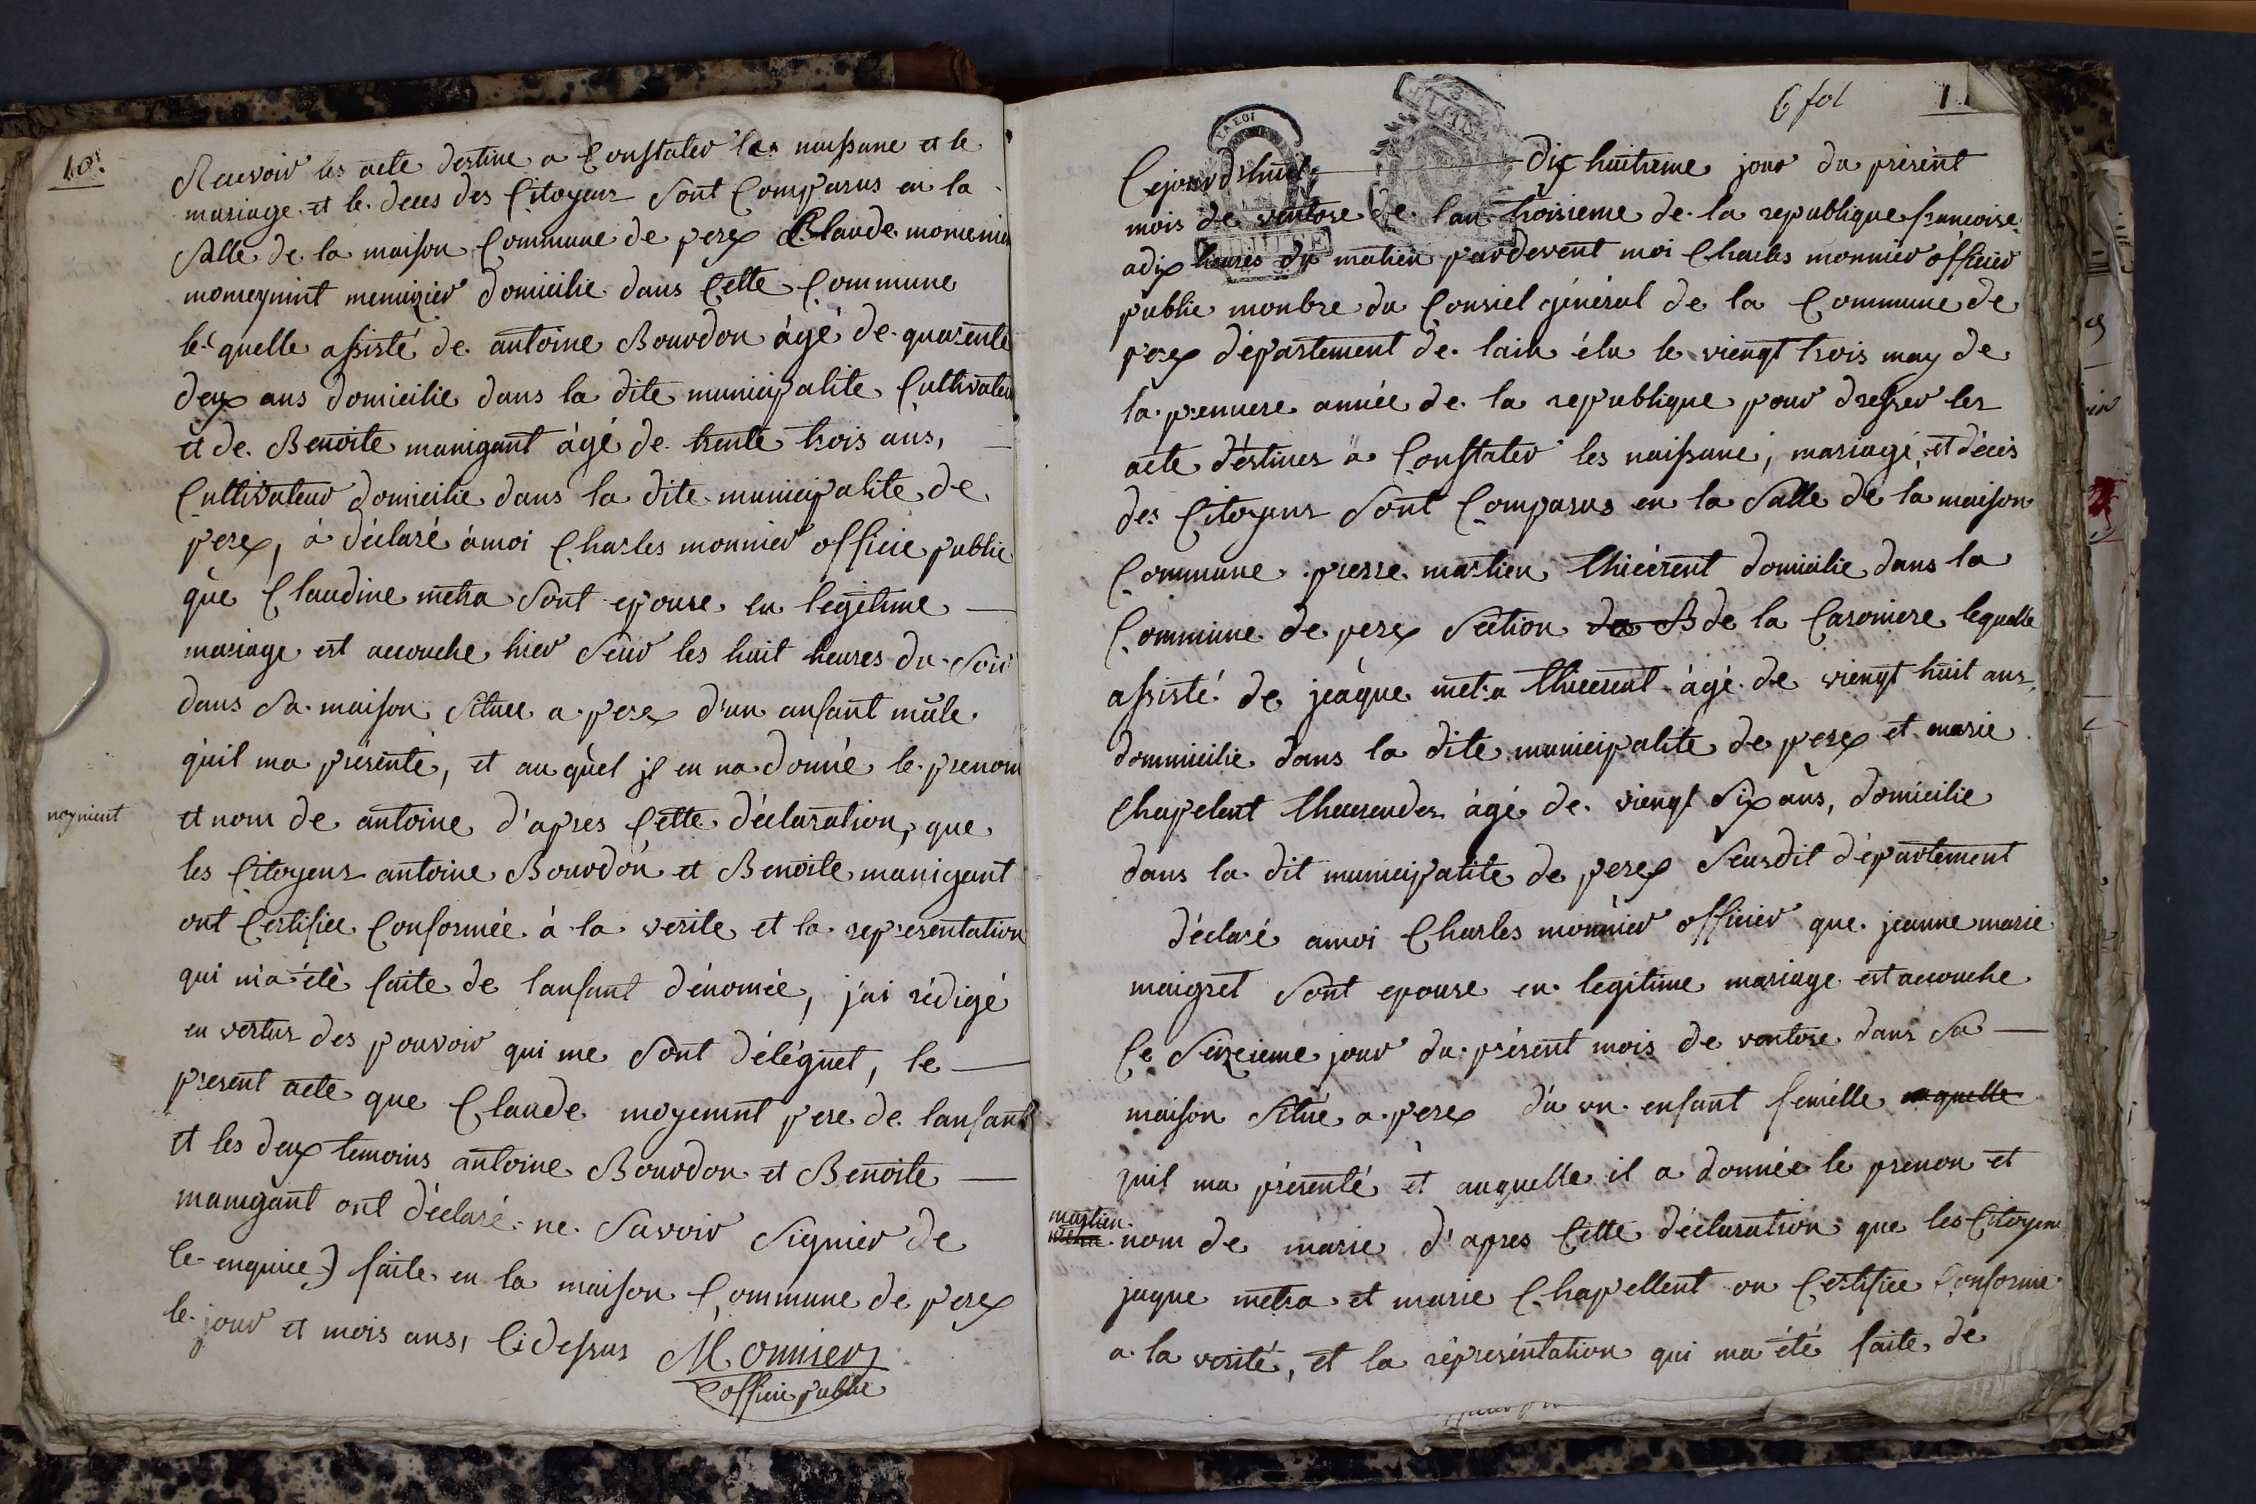 10.
Recevoir les acte destine a Constater les naissane et le
mariage et le deces des Citoyens Sont Comparus en la
Salle de la maison Commune de perex Claude
momeynint menuizier domicilie dans Cette Commune
le quelle assisté de antoine Bourdon àgé de quarente
deux ans domicilie dans la dite municipalite Cultivateur
et de Benoite manigant àgé de trente trois ans,
Cultivateur domicilie dans la dite municipalite de
perex, à déclaré àmoi Charles monnier officie public
que Claudine metra Sont epouse en legitime
mariage est accouche hier Seur les huit heures du Soir
dans Sa maison Situee a perex d'un anfant mâle
quil ma présenté, et au quel jl en na donné le prenom
noynient
et nom de antoine d'apres Cette déclaration, que
les Citoyens antoine Bourdon et Benoite manigant
ont Certifiee Conformée à la verite et la representation
qui m'a été faite de lanfant dénomée, j'ai rédigé
en vertus des pouvoir qui me Sont déléguet, le
present acte que Claude moyenint pere de lanfant
et les deux temoins antoine Bourdon et Benoite
manigant ont déclaré ne Savoir Signier de
le enquiee) faite en la maison Commune de perex
le jour et mois ans, Cidessus Monnier
officie public
6 fol 11
Cejourdhui dix huitieme jour du présent
mois de ventose de lan troisieme de la republique francoise
adix heures du matien pardevent moi Charles monnier officier
public monbre du Consiel général de la Commune de
perex département de lain élu le viengt trois may de
la premiere année de la republique pour dresser les
acte déstines à Constater les naissane, mariage, et décés
des Citoyens Sont Comparus en la Salle de la maison
Commune pierre martien thicérent domicilie dans la
Commune de perex Section du B de la Caroniere lequelle
assisté de jeàque metra thicerent àgé de viengt huit ans,
dommicilie dans la dite municipalite de perex et marie
Chapelent àgé de viengt Six àns, domicilie
dans la dit municipalite de perex Seusdit département
déclaré amoi Charles monnier officier que jeanne marie
maigret Sont epouse en legitime mariage est accouche
Ce Seizeieme jour du présent mois de ventose dans Sa
maison Situé a perex d'u un enfant femélle aquelle
quil ma présenté et auquelle il a donnée le prenon et
martien
metra
nom de marie d'apres Cette déclaration que les Citoyens
jaque metra et marie Chapellent on Certifiee Conforme
a la verité, et la représentation qui ma été faite de